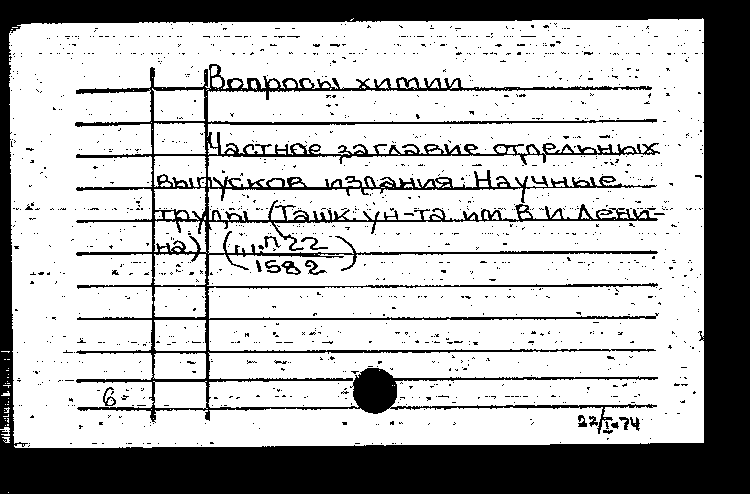 Вопросы химии
Частное заглавие отдельных
выпусков издания: Научные
труды (Ташк. ун-та им. В. И. Лени-
на) (П22
1582)
6
22/I-74